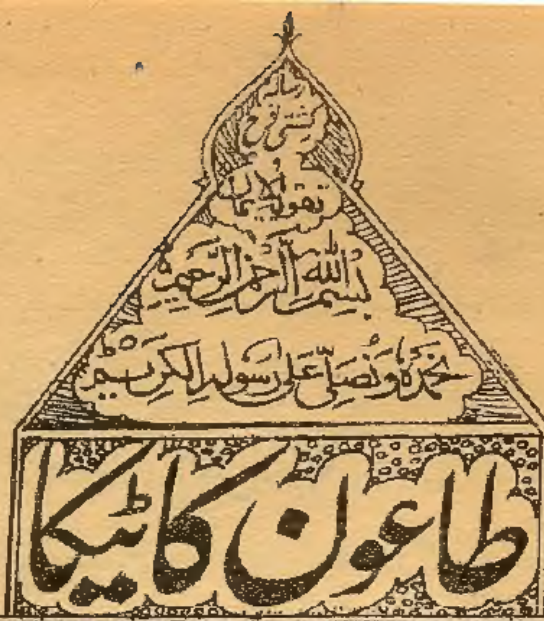 رسالہ
کشتی نوح
تقویۃ الایمان
بسم اللہ الرحمن الرحیم
نحمدہ ونصلی علی رسولہ الکریم
طاعون کا ٹیکا